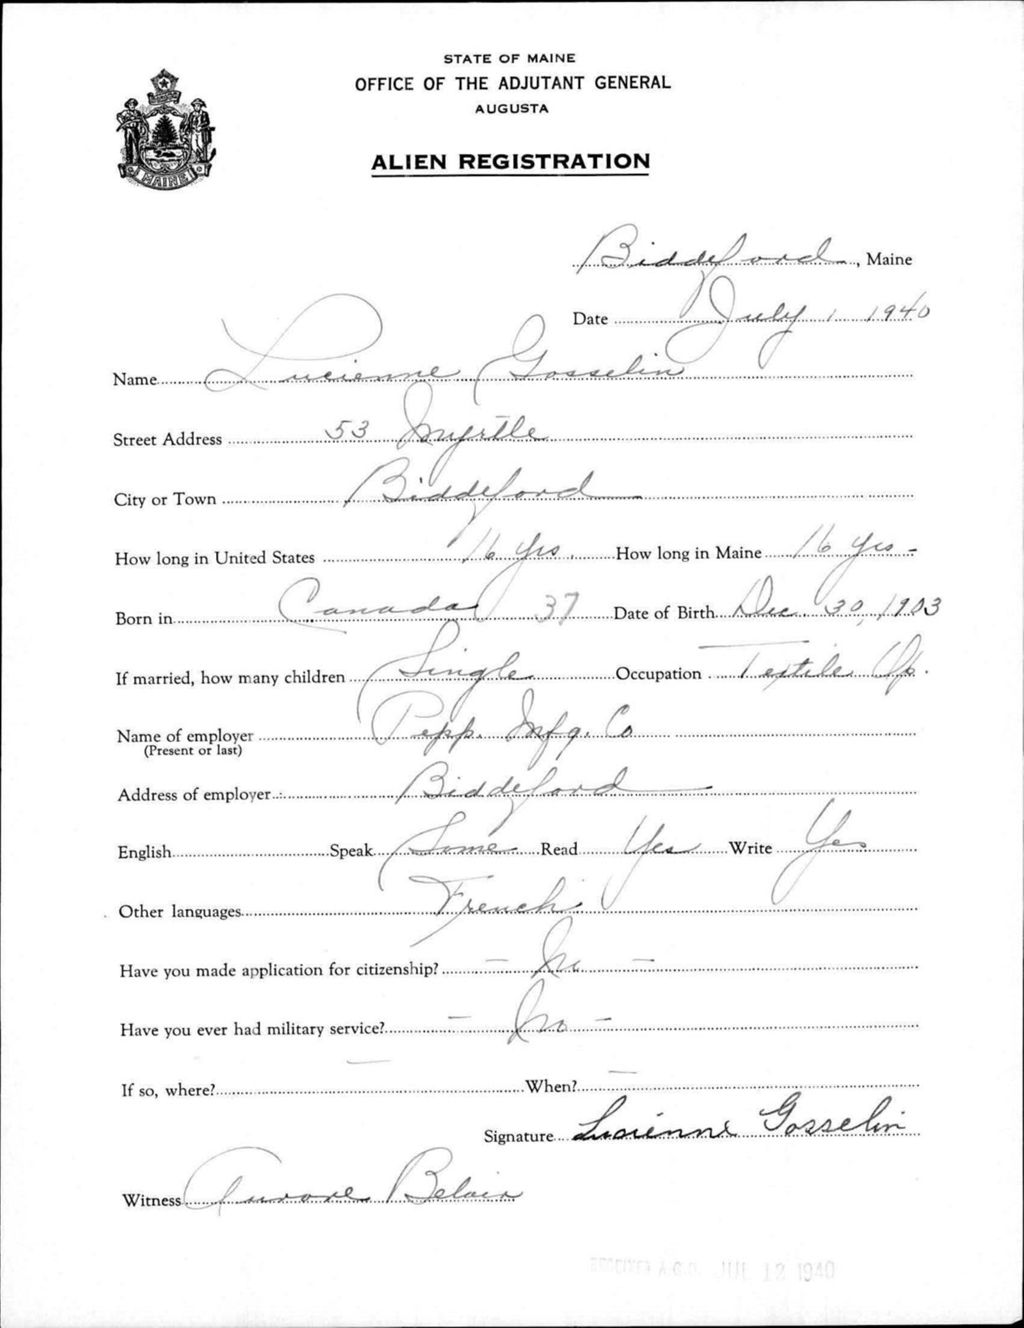 STATE OF MAINE
OFFICE OF THE ADJUTANT GENERAL
AUGUSTA
ALIEN REGISTRATION
MAINE
Biddeford, Maine
Date July 1 1940
Name Lucienne Gosselin
Street Address 53 Myrtle
City or Town Biddeford
How long in United States 16 yrs. How long in Maine 16 yrs -
Born in Canada 37 Date of Birth Dec. 30, 1903
If married, how many children Single Occupation Textile Op.
Name of employer Pepp. Mfg. Co
(Present or last)
Address of employer Biddeford
English Speak Some Read Yes Write Yes
Other languages French
Have you made application for citizenship? - No -
Have you ever had military service? - No -
If so, where? — When? —
Signature Lucienne Gosselin
Witness Aurore Belair
RECEIVED A.G.O. JUL 12 1940